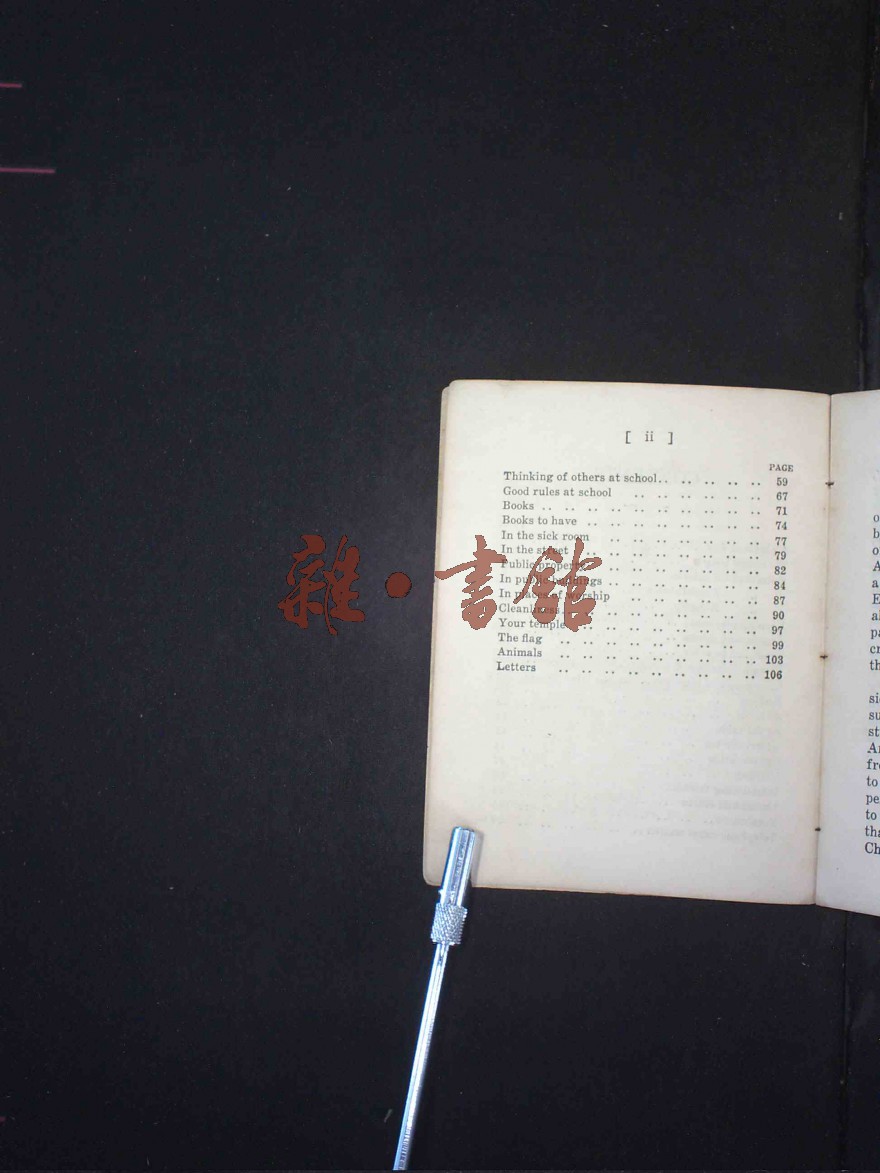 [ ii ]
PAGE
Thinking of others at school.. .. .. .. .. 59
Good rules at school .. .. .. .. .. .. 67
Books .. .. .. .. .. .. .. .. .. .. 71
Books to have .. .. .. .. .. .. .. .. 74
In the sick room .. .. .. .. .. .. .. 77
In the street .. .. .. .. .. .. .. .. 79
Public property .. .. .. .. .. .. .. 82
In public buildings .. .. .. .. .. .. .. 84
In places of worship .. .. .. .. .. .. 87
Cleanliness .. .. .. .. .. .. .. .. .. 90
Your temple .. .. .. .. .. .. .. .. 97
The flag .. .. .. .. .. .. .. .. .. 99
Animals .. .. .. .. .. .. .. .. .. 103
Letters .. .. .. .. .. .. .. .. .. 106
雜·書館